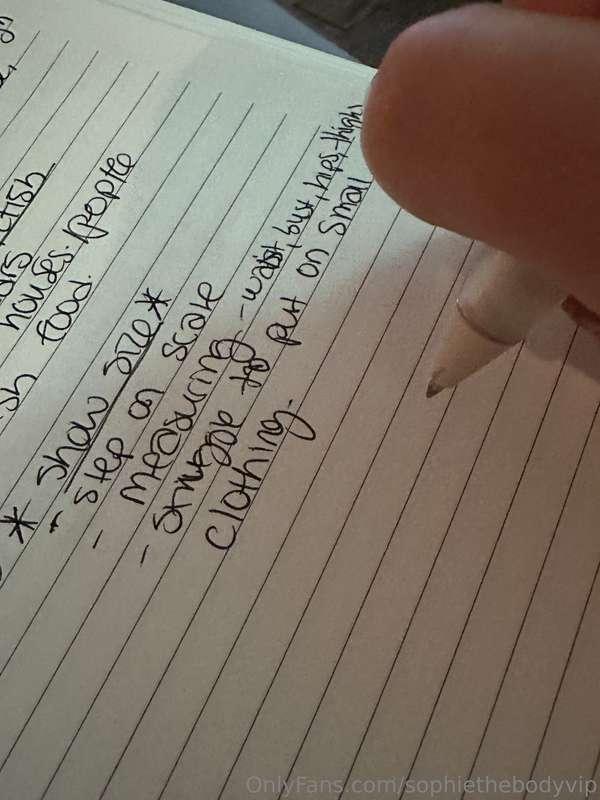 houses. people
food.
* show size *
- step on scale
- measuring - waist, bust, hips, thighs
- struggle to put on small
clothing.
OnlyFans.com/sophiethebodyvip